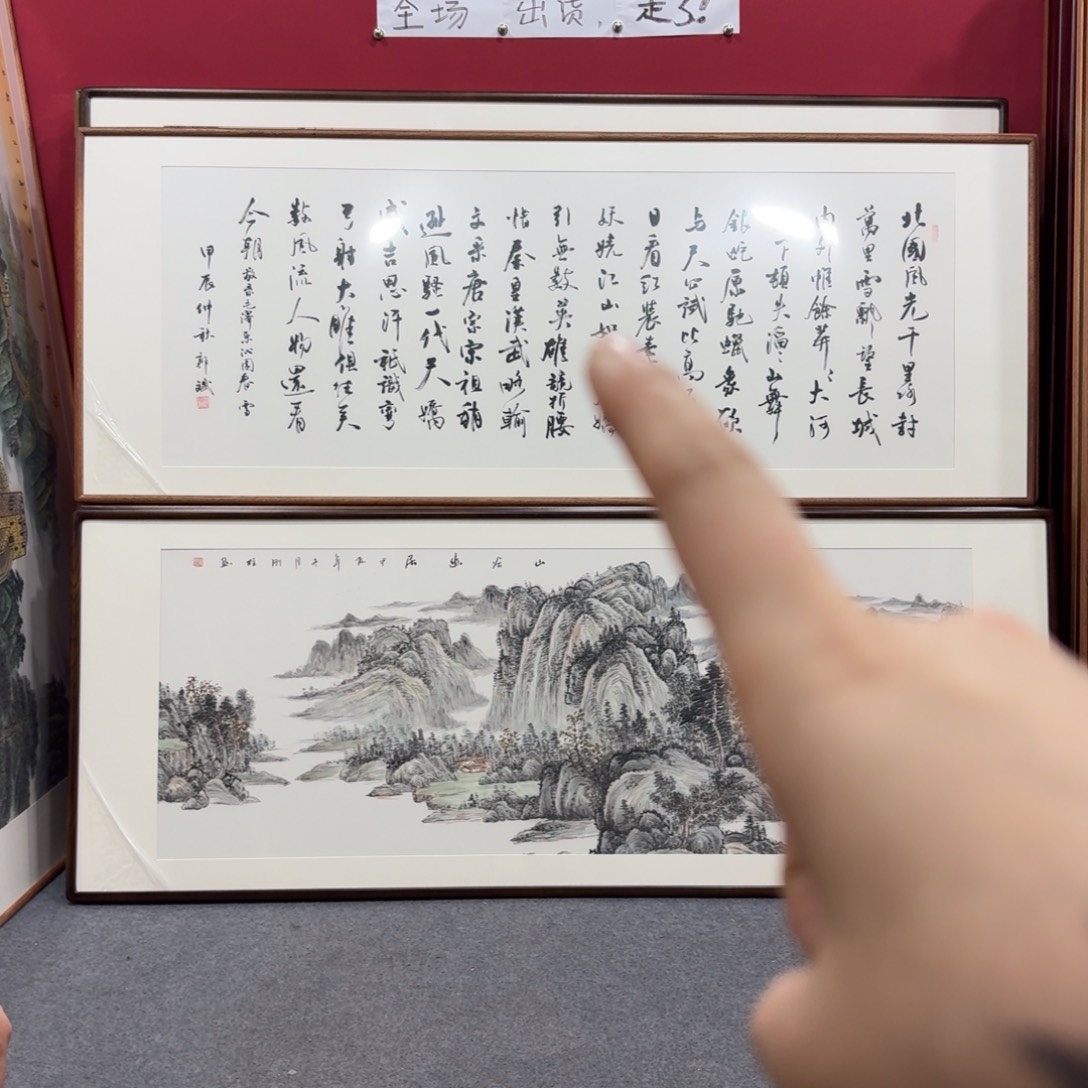 全场 出货, 走了!
北國風光千里冰封
萬里雪飄望長城
内外惟餘莽〻大河
下頓失滔〻山舞
銀蛇原馳蠟象欲
与天公試比高
日看红装素
妖娆江山
引無數英雄競折腰
惜秦皇漢武略輸
文采唐宗宋祖稍
遜風騷一代天驕
成吉思汗祇識彎
弓射大雕俱往矣
數風流人物還看
今朝 敬录毛澤东沁园春雪
甲辰仲秋
山居幽居